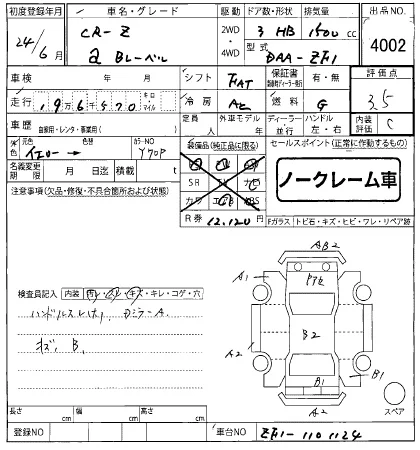 初度登録年月 車名・グレード 駆動 ドア数・形状 排気量 出品NO.
24/6月 CR-Z 2WD・4WD 3 HB 1500 cc 4002
α Bレーベル 型式 DAA-ZF1
車検 年 月 シフト FAT 保証書 有・無 評価点
走行 19万6千570 キロ マイル 冷房 AC 燃料 G 3.5
車歴 自家用・レンタ・事業用( ) 定員 人 外車モデル 年 ディーラー 並行 ハンドル 左・右 内装評価 C
外色 元色 イエロー→ 色替 カラーNO Y70P 装備品(純正品に限る) セールスポイント(正常に作動するもの)
名義変更期限 月 日迄 積載 t SR ナビ ノークレーム車
注意事項(欠品・修復・不具合箇所および状態) カワ
R券 12,120 円 Fガラス トビ石・キズ・ヒビ・ワレ・リペア跡
AB2
A1
検査員記入 内装 汚レ・スレ・キズ・キレ・コゲ・穴
ハンドルスレ ドミラーA
B2
A2
キズ、B、
B1
B1
A2
スペア
長さ cm 幅 cm 高さ cm
登録NO 車台NO ZF1-1101124